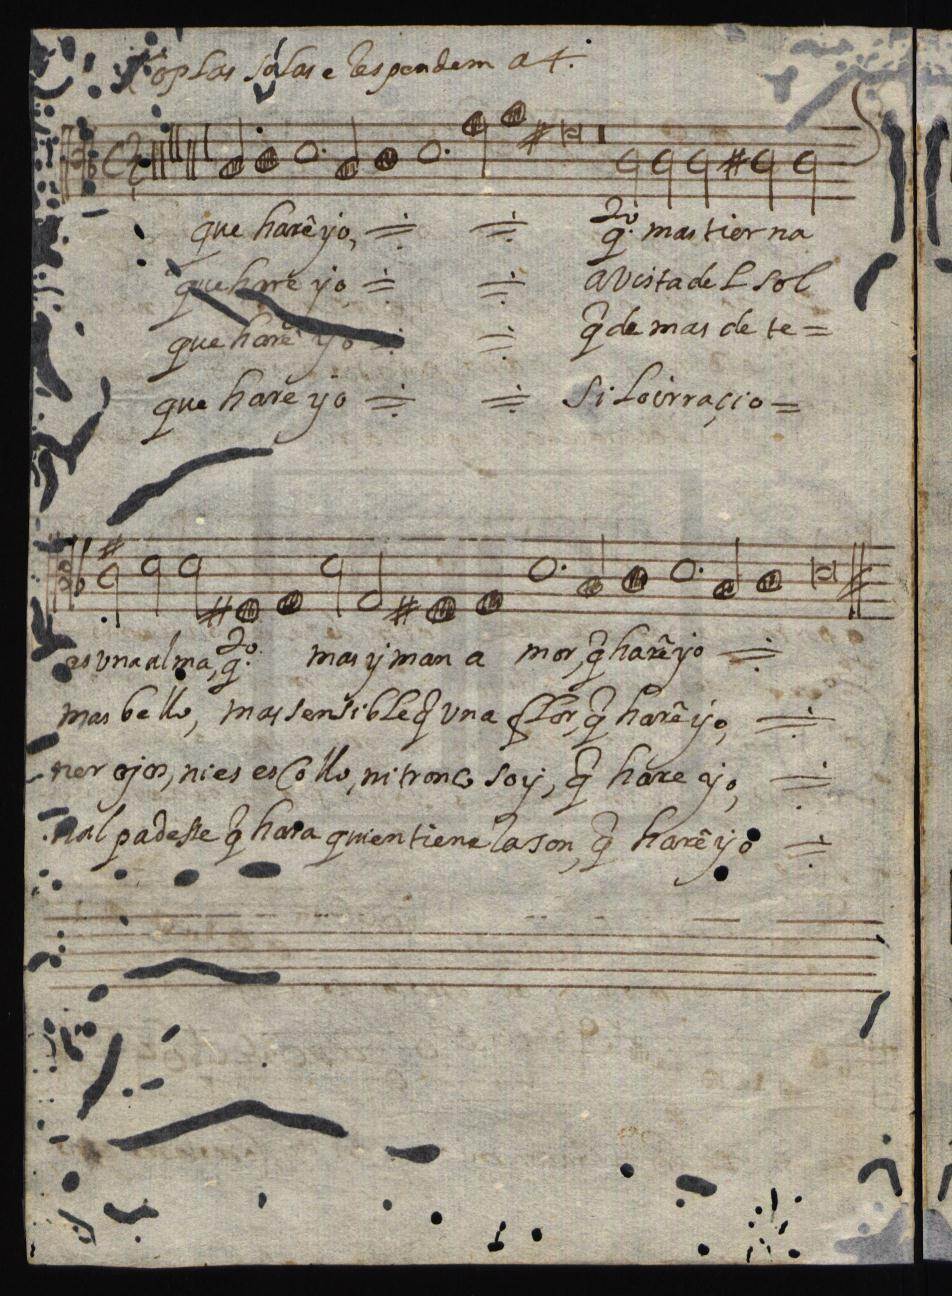 Coplas solas e Respondem a 4.
que harê yo,
q.do mas tierna
que hare yo
a Vista deL sol
que hare yo
q̃ de mas de te=
que hare yo
Si Lo irraçio=
es vna alma, q.do mas y man a mor, q̃ harê yo
mas bello, mas sensible q̃ vna flor, q̃ harê yo,
ner ojos, ni es escollo, ni tronco soy, q̃ hare yo,
nal padesse q̃ hara quien tiene Rason, q̃ harê yo